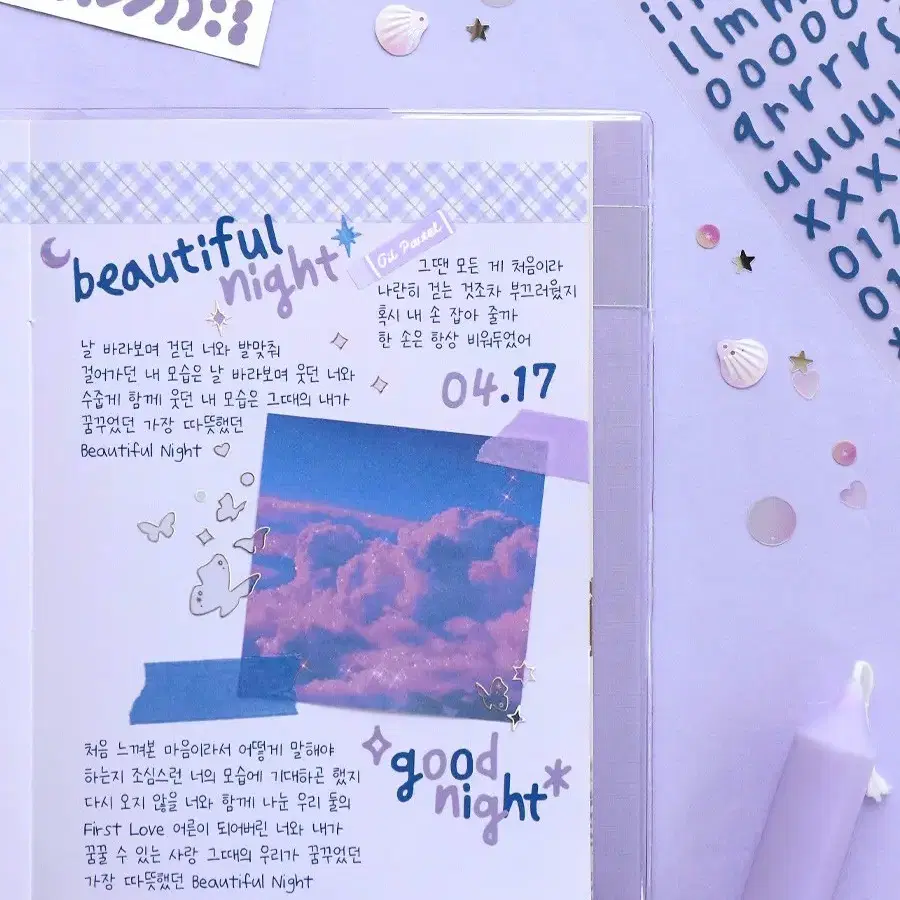 beautiful
night
Oil Pastel
그땐 모든 게 처음이라
나란히 걷는 것조차 부끄러웠지
혹시 내 손 잡아 줄까
한 손은 항상 비워두었어
04.17
날 바라보며 걷던 너와 발맞춰
걸어가던 내 모습은 날 바라보며 웃던 너와
수줍게 함께 웃던 내 모습은 그때의 내가
꿈꾸었던 가장 따뜻했던
Beautiful Night
처음 느껴본 마음이라서 어떻게 말해야
하는지 조심스런 너의 모습에 기대하곤 했지
다시 오지 않을 너와 함께 나눈 우리 둘의
First Love 어른이 되어버린 너와 내가
꿈꿀 수 있는 사랑 그때의 우리가 꿈꾸었던
가장 따뜻했던 Beautiful Night
good
night*
llmm
ooooo
qrrrrs
uuuuu
xxxy
012
01